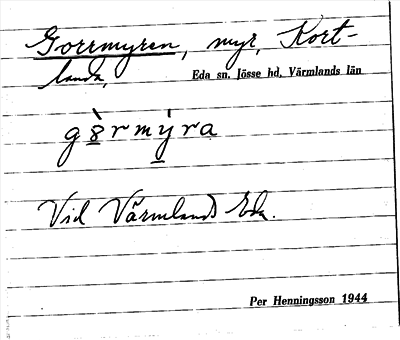 Gorrmyren, myr, Kort-
landa, Eda sn, Jösse hd, Värmlands län
gə̀rmýra
Vid Värmlands Eda.
Per Henningsson 1944